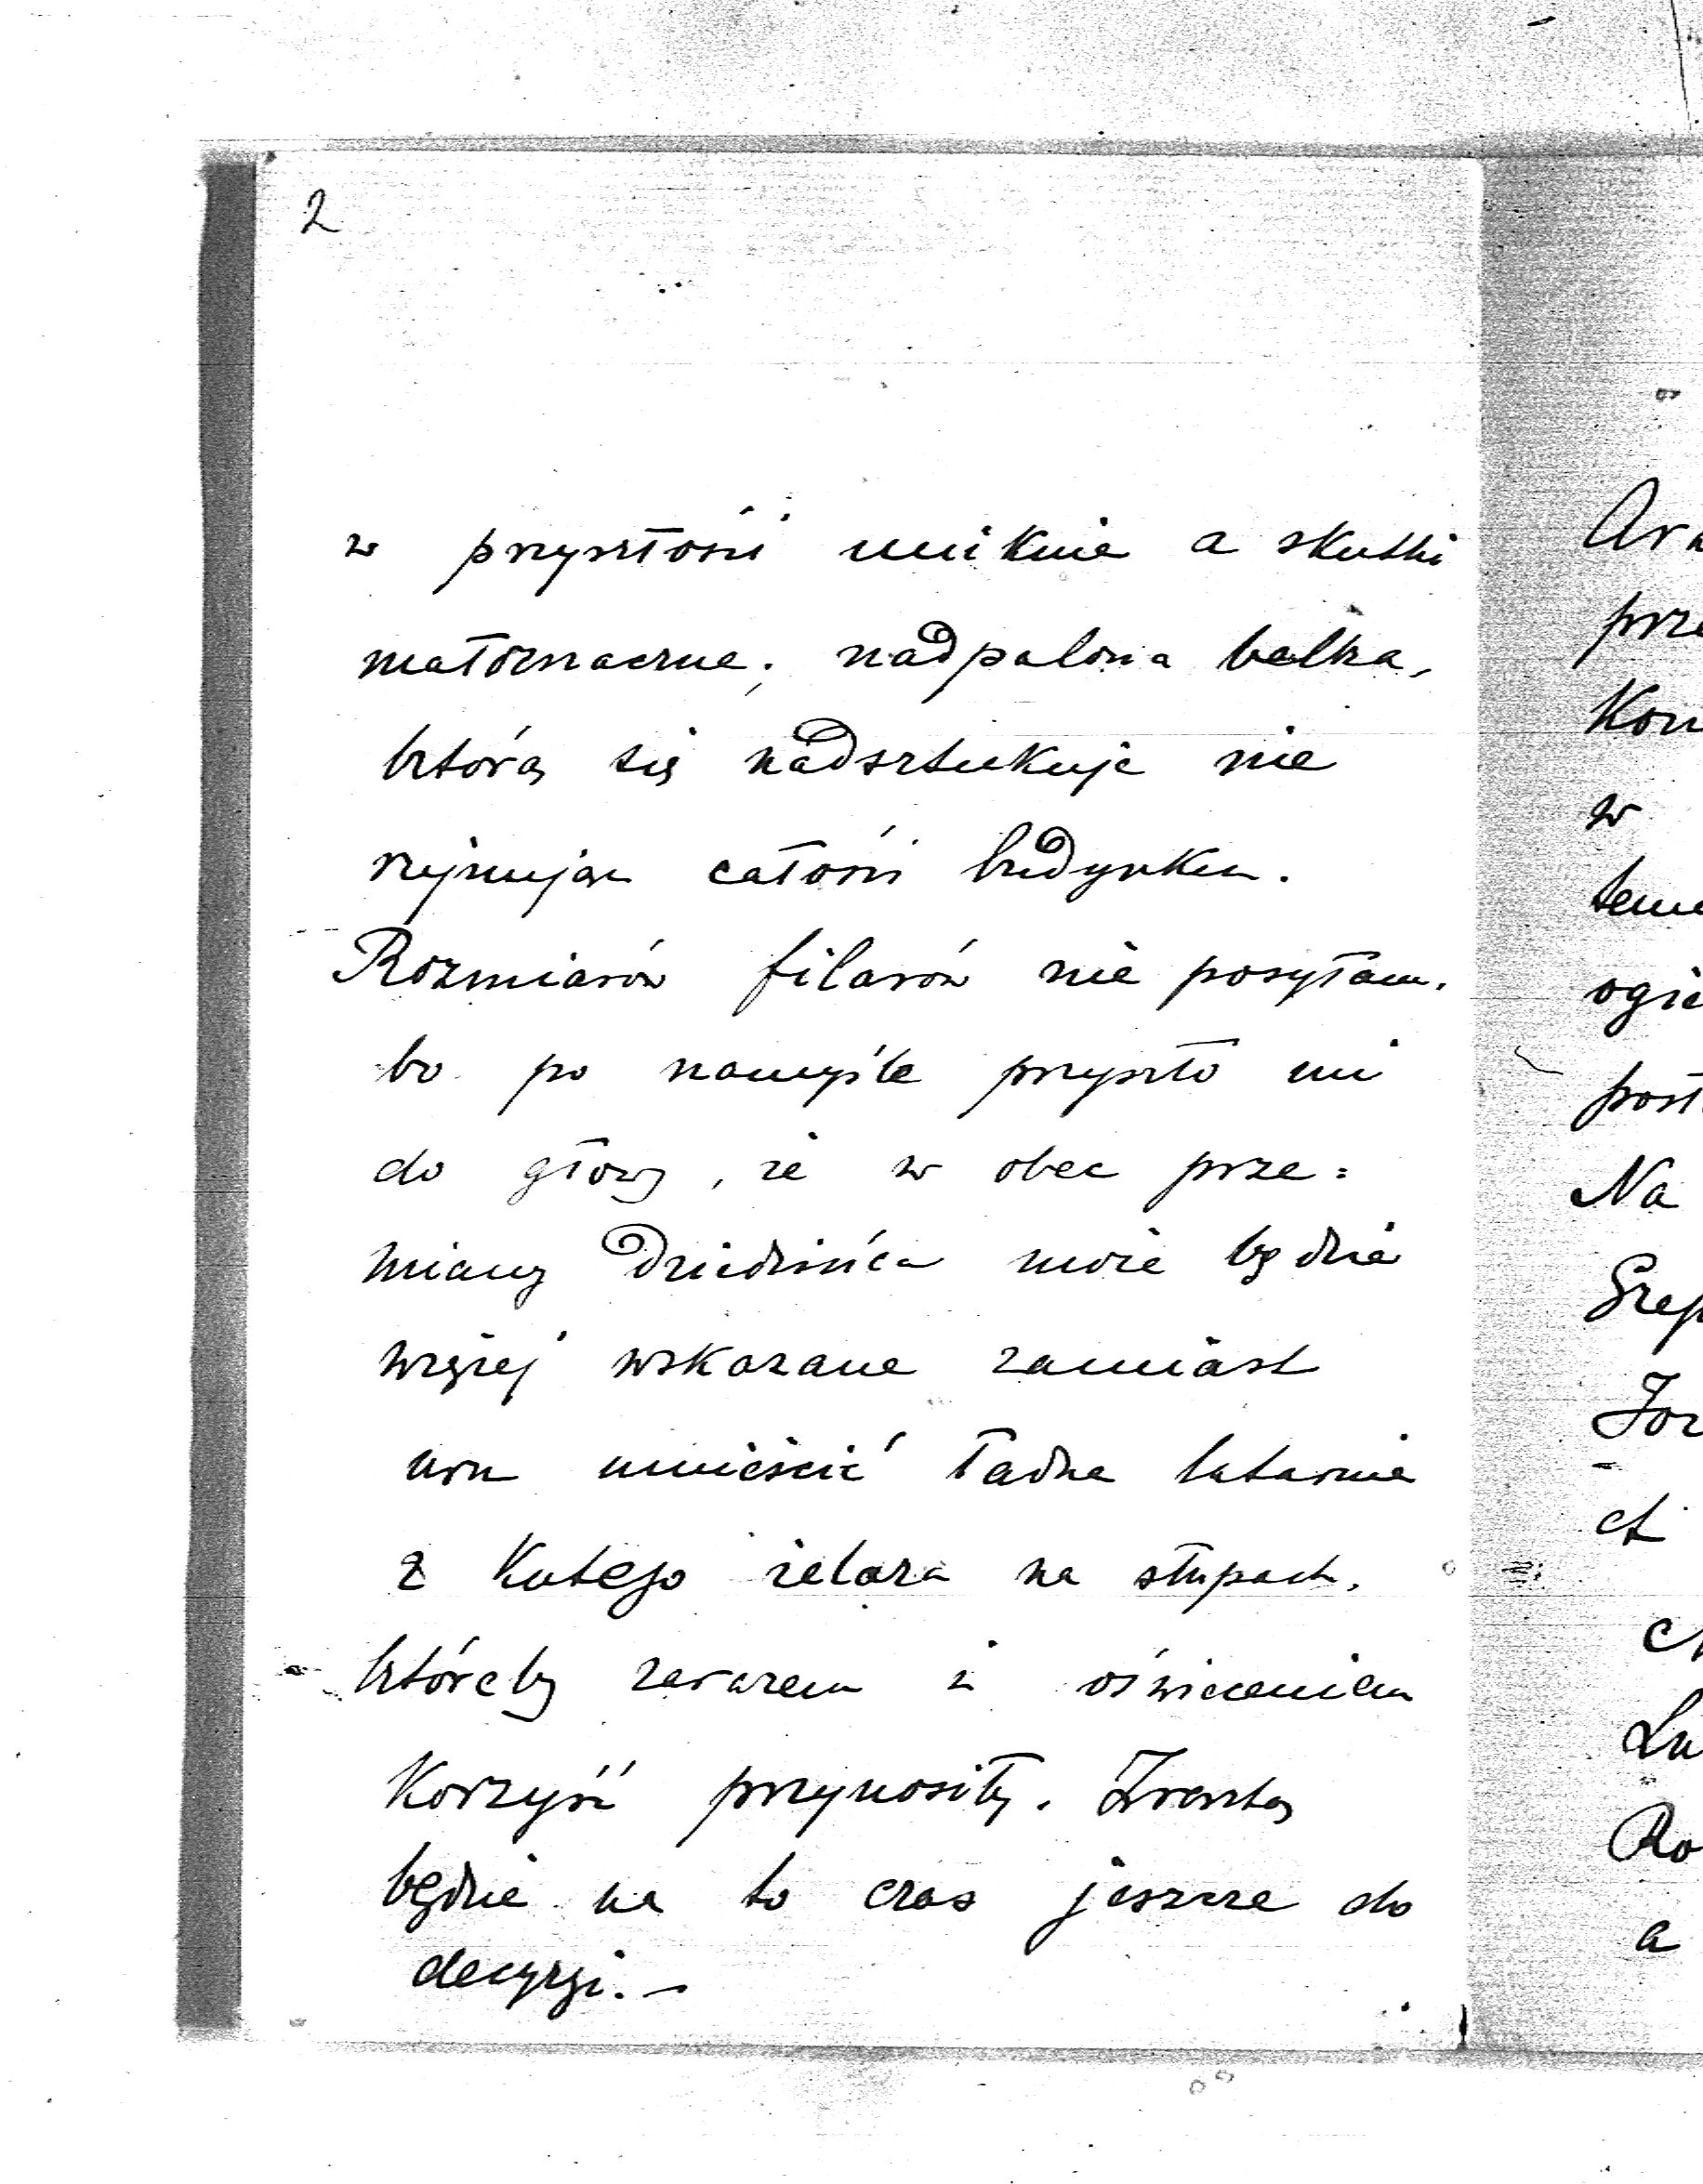 2
w przyszłości uniknie a skutki
małoznaczne; nadpalona belka,
którą się nadsztukuje nie
zajmując całości budynku.
Rozmiarów filarów nie posyłam,
bo po namyśle przyszło mi
do głowy, że w obec prze=
miany dziedzińca może będzie
więcej wskazane zamiast
urn umieścić ładne latarnie
z kutego żelaza na słupach,
któreby zarazem z oświeceniem
korzyść przynosiły. Zresztą
będzie na to czas jeszcze do
decyzji. –
Na
w
et
a